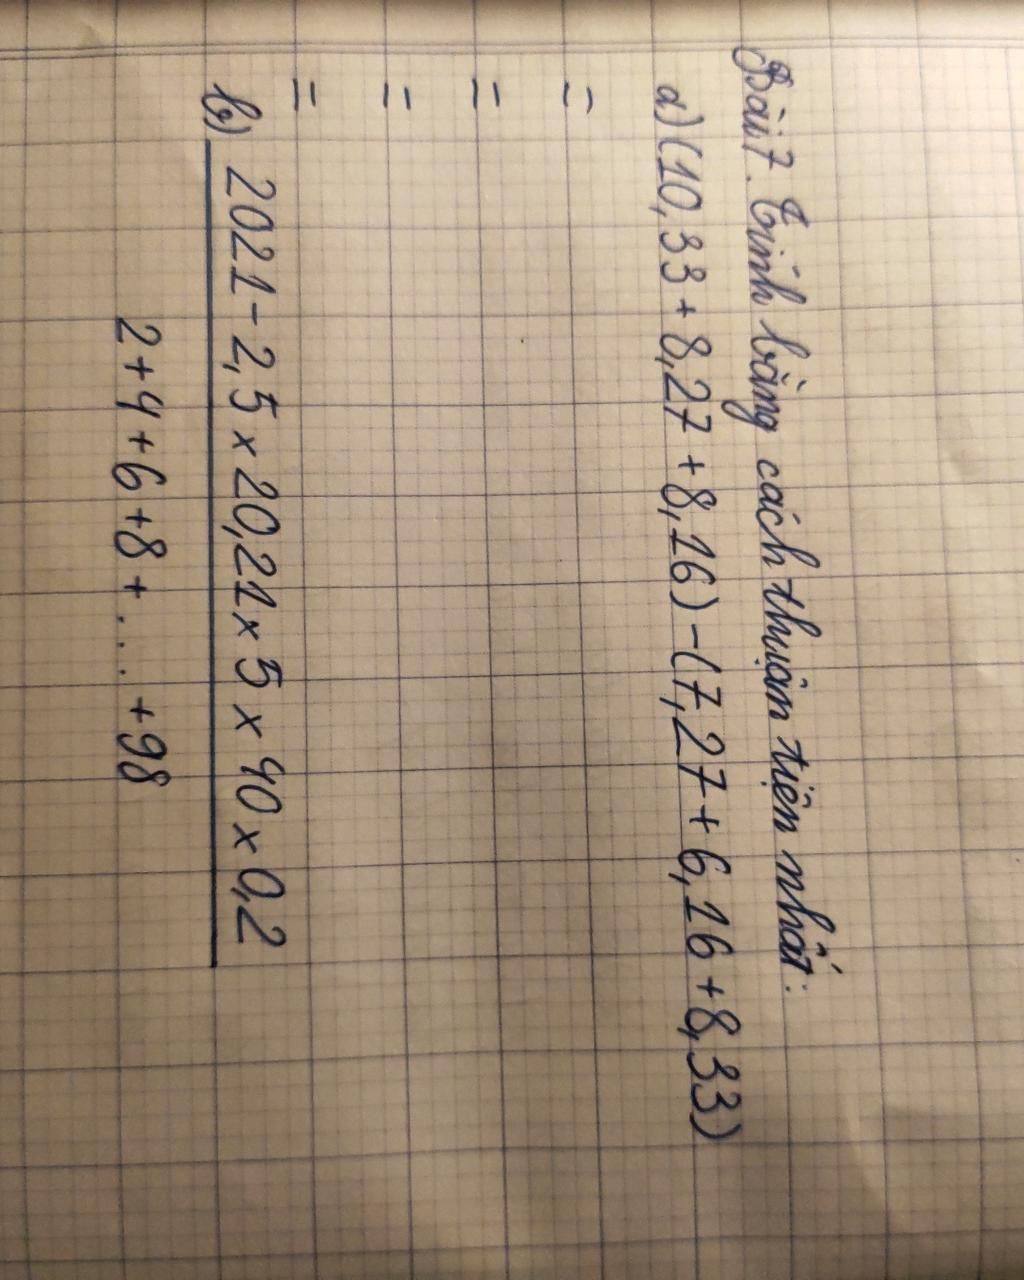 Bài 7. Tính bằng cách thuận tiện nhất:
a) (10,33 + 8,27 + 8,16) - (7,27 + 6,16 + 8,33)
=
=
=
=
b) 2021 - 2,5 × 20,21 × 5 × 40 × 0,2
2 + 4 + 6 + 8 + ... + 98